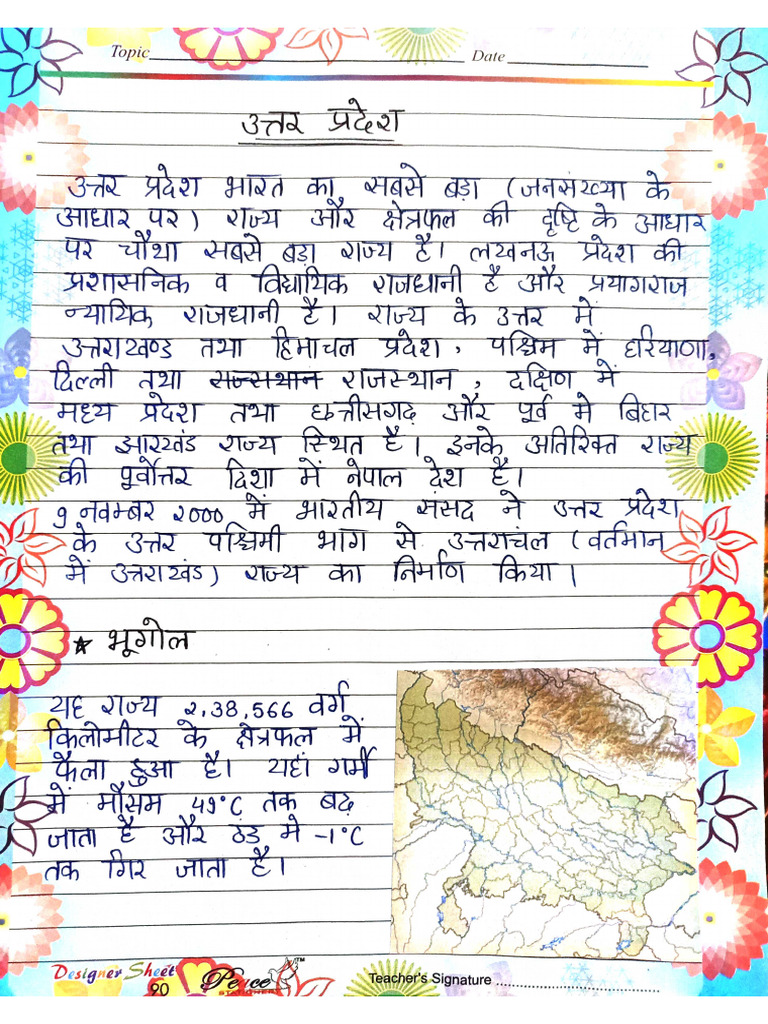 Topic
Date
उत्तर प्रदेश
उत्तर प्रदेश भारत का सबसे बड़ा (जनसंख्या के
आधार पर) राज्य और क्षेत्रफल की दृष्टि के आधार
पर चौथा सबसे बड़ा राज्य है। लखनऊ प्रदेश की
प्रशासनिक व विधायिक राजधानी है और प्रयागराज
न्यायिक राजधानी है। राज्य के उत्तर में
उत्तराखण्ड तथा हिमाचल प्रदेश, पश्चिम में हरियाणा,
दिल्ली तथा राजस्थान, दक्षिण में
मध्य प्रदेश तथा छत्तीसगढ़ और पूर्व मे बिहार
तथा झारखंड राज्य स्थित है। इनके अतिरिक्त राज्य
की पूर्वोत्तर दिशा में नेपाल देश है।
9 नवम्बर 2000 में भारतीय संसद ने उत्तर प्रदेश
के उत्तर पश्चिमी भाग से उत्तराचंल (वर्तमान
में उत्तराखंड) राज्य का निर्माण किया।
★ भूगोल
यह राज्य 2,38,566 वर्ग
किलोमीटर के क्षेत्रफल में
फैला हुआ है। यहां गर्मी
में मौसम 49°C तक बढ़
जाता है और ठंड मे -1°C
तक गिर जाता है।
Designer Sheet
90
Peace
STATIONERY
TM
Teacher's Signature